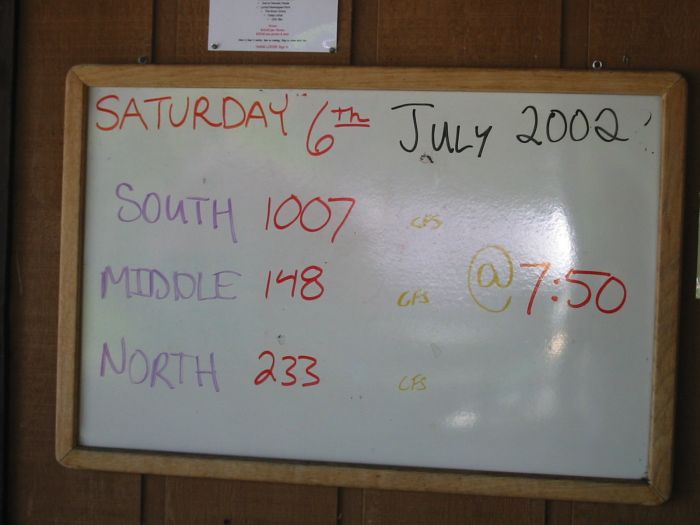 SATURDAY 6TH JULY 2002
SOUTH 1007 CFS
MIDDLE 148 CFS @ 7:50
NORTH 233 CFS